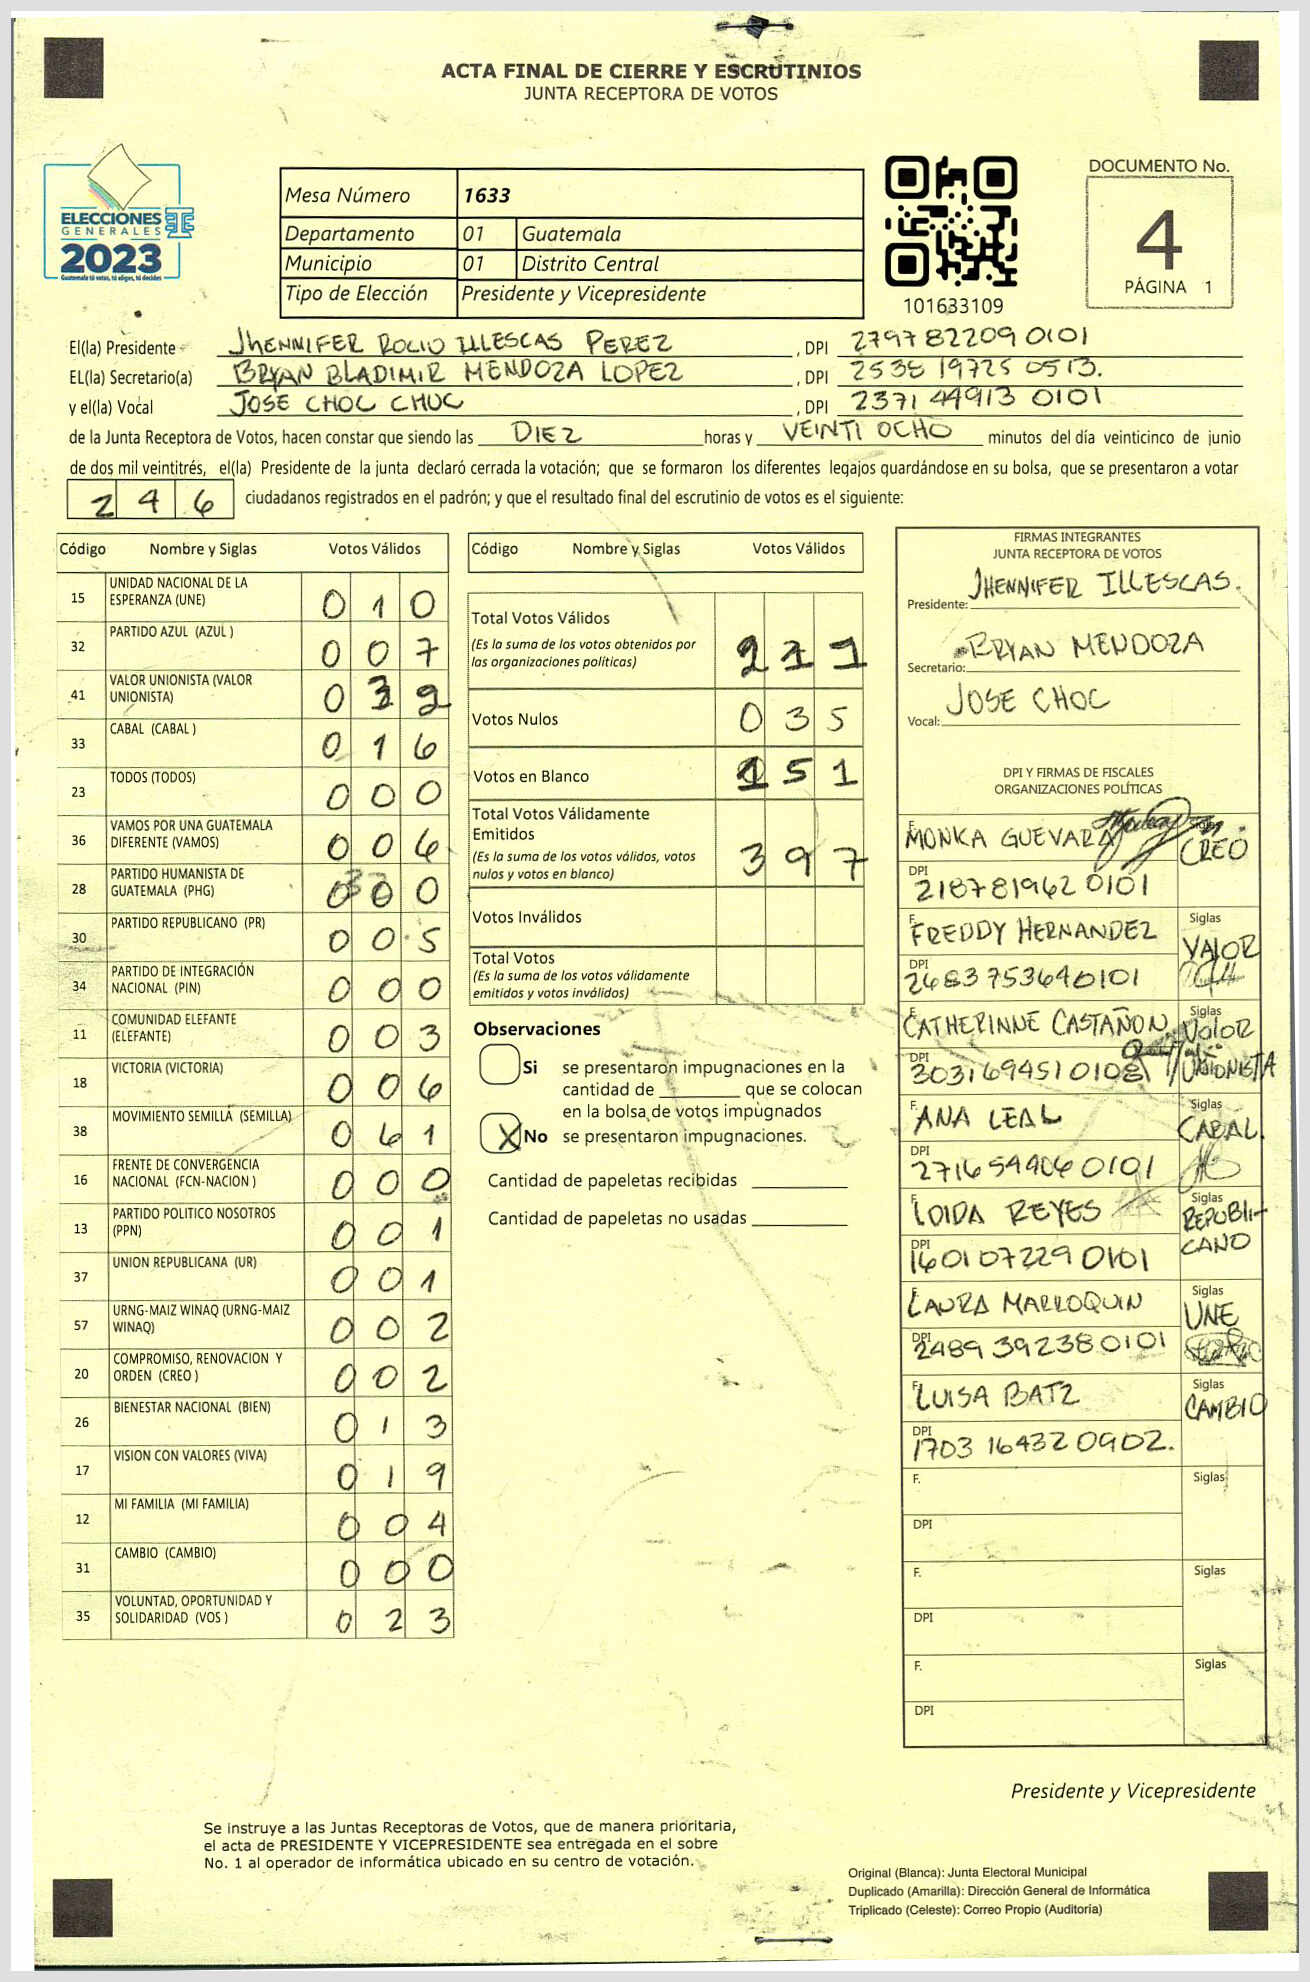 ACTA FINAL DE CIERRE Y ESCRUTINIOS
JUNTA RECEPTORA DE VOTOS
ELECCIONES
GENERALES
2023
Guatemala tú votas, tú eliges, tú decides
Mesa Número 1633
Departamento 01 Guatemala
Municipio 01 Distrito Central
Tipo de Elección Presidente y Vicepresidente
101633109
DOCUMENTO No.
4
PÁGINA 1
El(la) Presidente JHENNIFER ROCIO ILLESCAS PEREZ, DPI 2797 82209 0101
EL(la) Secretario(a) BRYAN BLADIMIR MENDOZA LOPEZ, DPI 2538 19725 0513.
y el(la) Vocal JOSE CHOC CHUC, DPI 2371 44913 0101
de la Junta Receptora de Votos, hacen constar que siendo las DIEZ horas y VEINTI OCHO minutos del día veinticinco de junio
de dos mil veintitrés, el(la) Presidente de la junta declaró cerrada la votación; que se formaron los diferentes legajos guardándose en su bolsa, que se presentaron a votar
246 ciudadanos registrados en el padrón; y que el resultado final del escrutinio de votos es el siguiente:
Código Nombre y Siglas Votos Válidos
15 UNIDAD NACIONAL DE LA ESPERANZA (UNE) 0 1 0
32 PARTIDO AZUL (AZUL ) 0 0 7
41 VALOR UNIONISTA (VALOR UNIONISTA) 0 3 2
33 CABAL (CABAL ) 0 1 6
23 TODOS (TODOS) 0 0 0
36 VAMOS POR UNA GUATEMALA DIFERENTE (VAMOS) 0 0 6
28 PARTIDO HUMANISTA DE GUATEMALA (PHG) 0 0 0
30 PARTIDO REPUBLICANO (PR) 0 0 5
34 PARTIDO DE INTEGRACIÓN NACIONAL (PIN) 0 0 0
11 COMUNIDAD ELEFANTE (ELEFANTE) 0 0 3
18 VICTORIA (VICTORIA) 0 0 6
38 MOVIMIENTO SEMILLA (SEMILLA) 0 6 1
16 FRENTE DE CONVERGENCIA NACIONAL (FCN-NACION ) 0 0 0
13 PARTIDO POLITICO NOSOTROS (PPN) 0 0 1
37 UNION REPUBLICANA (UR) 0 0 1
57 URNG-MAIZ WINAQ (URNG-MAIZ WINAQ) 0 0 2
20 COMPROMISO, RENOVACION Y ORDEN (CREO ) 0 0 2
26 BIENESTAR NACIONAL (BIEN) 0 1 3
17 VISION CON VALORES (VIVA) 0 1 9
12 MI FAMILIA (MI FAMILIA) 0 0 4
31 CAMBIO (CAMBIO) 0 0 0
35 VOLUNTAD, OPORTUNIDAD Y SOLIDARIDAD (VOS ) 0 2 3
Código Nombre y Siglas Votos Válidos
Total Votos Válidos 2 1 1
(Es la suma de los votos obtenidos por
las organizaciones políticas)
Votos Nulos 0 3 5
Votos en Blanco 1 5 1
Total Votos Válidamente
Emitidos 3 9 7
(Es la suma de los votos válidos, votos
nulos y votos en blanco)
Votos Inválidos
Total Votos
(Es la suma de los votos válidamente
emitidos y votos inválidos)
Observaciones
Si se presentaron impugnaciones en la
cantidad de ________ que se colocan
en la bolsa de votos impugnados
X No se presentaron impugnaciones.
Cantidad de papeletas recibidas
Cantidad de papeletas no usadas
FIRMAS INTEGRANTES
JUNTA RECEPTORA DE VOTOS
Presidente: JHENNIFER ILLESCAS.
Secretario: BRYAN MENDOZA
Vocal: JOSE CHOC
DPI Y FIRMAS DE FISCALES
ORGANIZACIONES POLÍTICAS
F. MONICA GUEVARA Siglas CREO
DPI 218781962 0101
F. FREDDY HERNANDEZ Siglas VALOR
DPI 2683753640101
F. CATHERINNE CASTAÑON Siglas Valor UNIONISTA
DPI 303169451 0108
F. ANA LEAL Siglas CABAL.
DPI 2716 54406 0101
F. LOIDA REYES Siglas REPUBLI-
CANO
DPI 1601 07229 0101
F. LAURA MARROQUIN Siglas UNE
DPI 2489 39238 0101
F. LUISA BATZ Siglas CAMBIO
DPI 1703 16432 0902.
F. Siglas
DPI
F. Siglas
DPI
F. Siglas
DPI
Presidente y Vicepresidente
Se instruye a las Juntas Receptoras de Votos, que de manera prioritaria,
el acta de PRESIDENTE Y VICEPRESIDENTE sea entregada en el sobre
No. 1 al operador de informática ubicado en su centro de votación.
Original (Blanca): Junta Electoral Municipal
Duplicado (Amarilla): Dirección General de Informática
Triplicado (Celeste): Correo Propio (Auditoría)